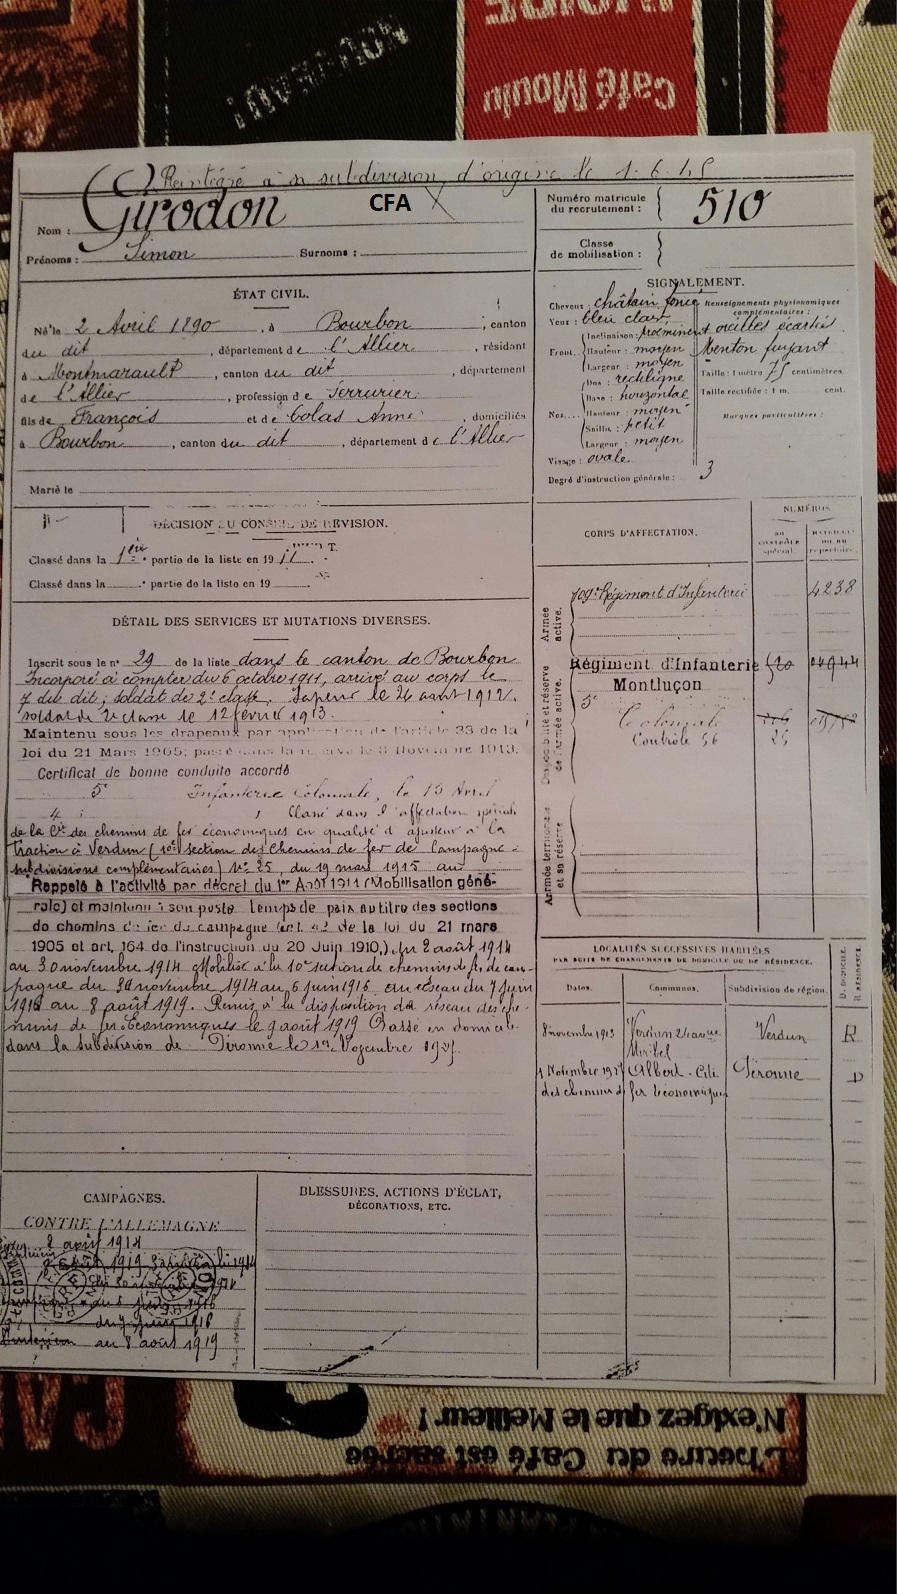 Café Moulu
Réintégré à sa subdivision d'origine le 1-6-15
Nom : Girodon CFA
Prénoms : Simon Surnoms :
Numéro matricule du recrutement : 510
Classe de mobilisation :
ÉTAT CIVIL.
Né le 2 Avril 1890, à Bourbon, canton
du dit, département de l'Allier, résidant
à Montmarault, canton du dit, département
de l'Allier, profession de Serrurier
fils de François et de Colas Anne, domiciliés
à Bourbon, canton du dit, département de l'Allier
Marié le
SIGNALEMENT.
Cheveux : châtain foncé
Yeux : bleu clair
Front. Inclinaison : proéminent
Hauteur : moyen
Largeur : moyen
Nez. Dos : rectiligne
Base : horizontal
Hauteur : moyen
Saillie : petit
Largeur : moyen
Visage : ovale
Renseignements physionomiques complémentaires :
oreilles écartées
Menton fuyant
Taille : 1 mètre 75 centimètres.
Taille rectifiée : 1 m. cent.
Marques particulières :
Degré d'instruction générale : 3
DÉCISION DU CONSEIL DE RÉVISION.
Classé dans la 1ère partie de la liste en 1911
Classé dans la partie de la liste en 19
DÉTAIL DES SERVICES ET MUTATIONS DIVERSES.
Inscrit sous le n° 29 de la liste dans le canton de Bourbon
Incorporé à compter du 6 octobre 1911, arrivé au corps le
7 du dit, soldat de 2e classe, Sapeur le 26 août 1912.
soldat de 2e classe le 12 février 1913.
Maintenu sous les drapeaux par application de l'article 33 de la
loi du 21 Mars 1905; passé dans la réserve le 8 Novembre 1913.
Certificat de bonne conduite accordé
5e Infanterie Coloniale, le 15 Avril
Classé dans l'affectation spéciale
de la Cie des chemins de fer économiques en qualité d'ajusteur à la
traction à Verdun (10e section des Chemins de fer de Campagne
subdivisions complémentaires) N° 25, du 19 mars 1915 au
Rappelé à l'activité par décret du 1er Août 1914 (Mobilisation géné-
rale) et maintenu à son poste temps de paix au titre des sections
de chemins de fer de campagne (art. 42 de la loi du 21 mars
1905 et art. 164 de l'instruction du 20 Juin 1910.) du 2 août 1914
au 30 novembre 1914. Mobilisé à la 10e section de chemins de fer de cam-
pagne du 30 novembre 1914 au 6 juin 1916 au réseau du 7 juin
1916 au 8 août 1919. Remis à la disposition du réseau des che-
mins de fer Économiques le 9 août 1919 Passé en domicile
dans la subdivision de Péronne le
CORPS D'AFFECTATION.
NUMÉROS
109e Régiment d'Infanterie 4238
Régiment d'Infanterie
Montluçon
5e Coloniale
Contrôle 56 25
Armée active.
Disponibilité et réserve de l'armée active.
Armée territoriale et sa réserve
LOCALITÉS SUCCESSIVES HABITÉES
PAR SUITE DE CHANGEMENTS DE DOMICILE OU DE RÉSIDENCE.
Dates. Communes. Subdivision de région. D. DOMICILE. R. RÉSIDENCE.
8 novembre 1913 Verdun Verdun R
Albert - Cité Péronne D
des chemins de fer Économiques
CAMPAGNES.
CONTRE L'ALLEMAGNE
2 août 1914
du 7 juin 1916
au 8 août 1919
BLESSURES, ACTIONS D'ÉCLAT,
DÉCORATIONS, ETC.
N'exigez que le Meilleur !
L'heure du Café est sacrée